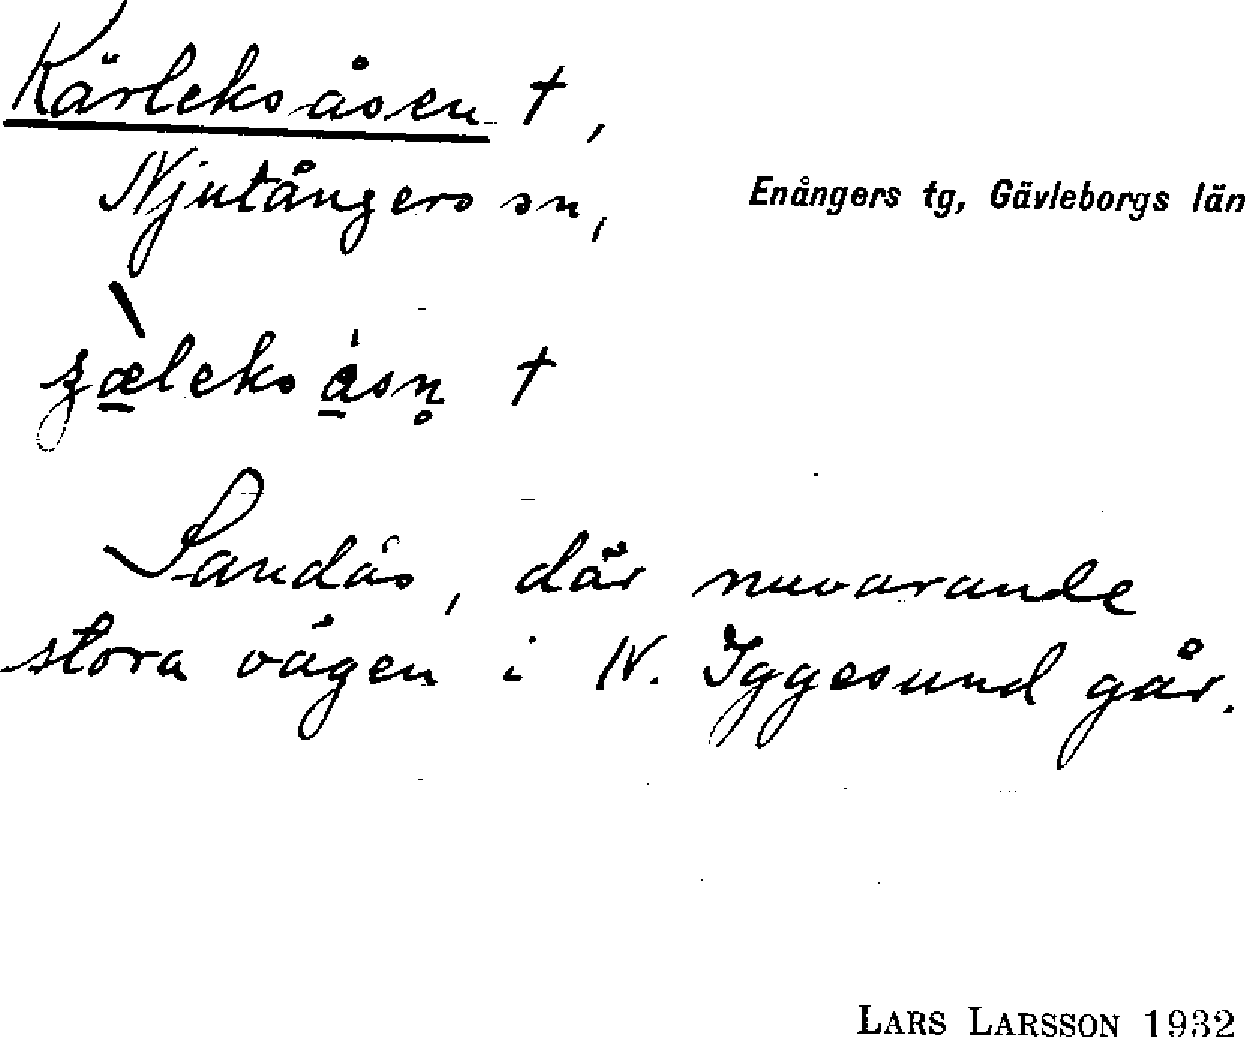 Kärleksåsen †,
Njutångers sn,
Enångers tg, Gävleborgs län
†
Sandås, där nuvarande
stora vägen i N. Iggesund går.
LARS LARSSON 1932